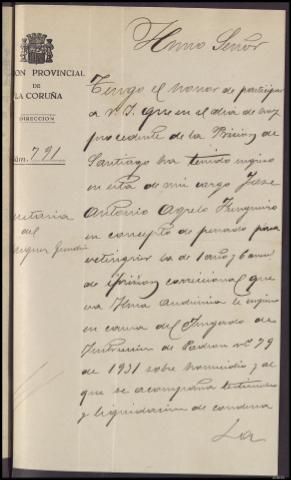 Ilmo Señor
ON PROVINCIAL
DE
LA CORUÑA
DIRECCIÓN
Núm. 791
Tengo el honor de participar
a V. I. que en el día de hoy
procedente de la Prisión de
Santiago ha tenido ingreso
en esta de mi cargo Jose
Antonio Agrelo
en concepto de penado para
extinguir la de 1 año y 6 meses
de prisión correccional que
esa Ilma Audiencia le impuso
en causa del Juzgado de
Instrucción de Padron nº 79
de 1931 sobre homicidio y al
que se acompaña testimonio
y liquidación de condena
La